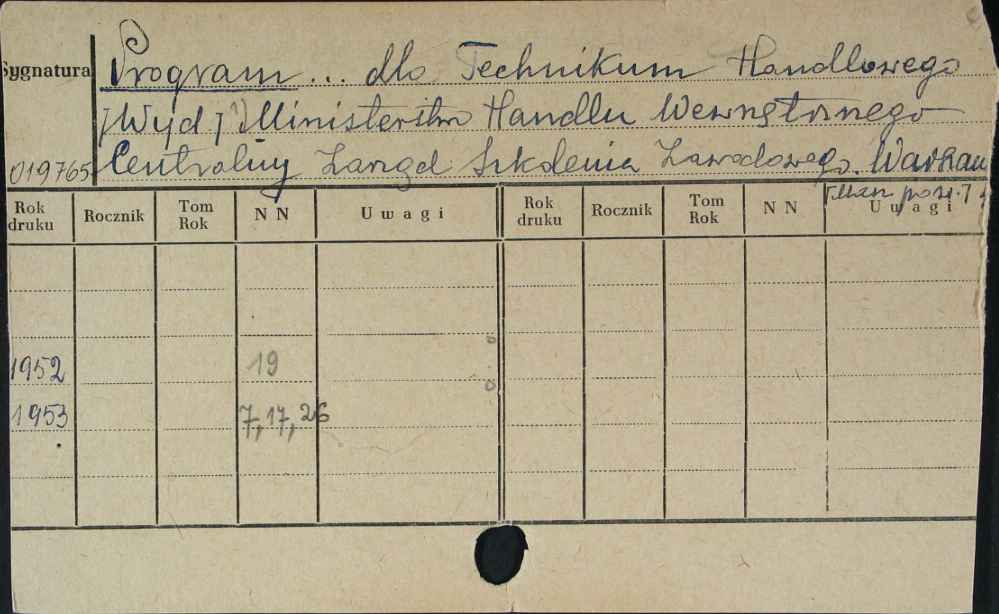 Sygnatura
Program ... dla Technikum Handlowego
[Wyd] Ministerstwo Handlu Wewnętrznego
019765 Centralny Zarząd Szkolenia Zawodowego. Warszawa
Rok druku Rocznik Tom Rok N N Uwagi Rok druku Rocznik Tom Rok N N Uwagi
1952 19
1953 7, 17, 26